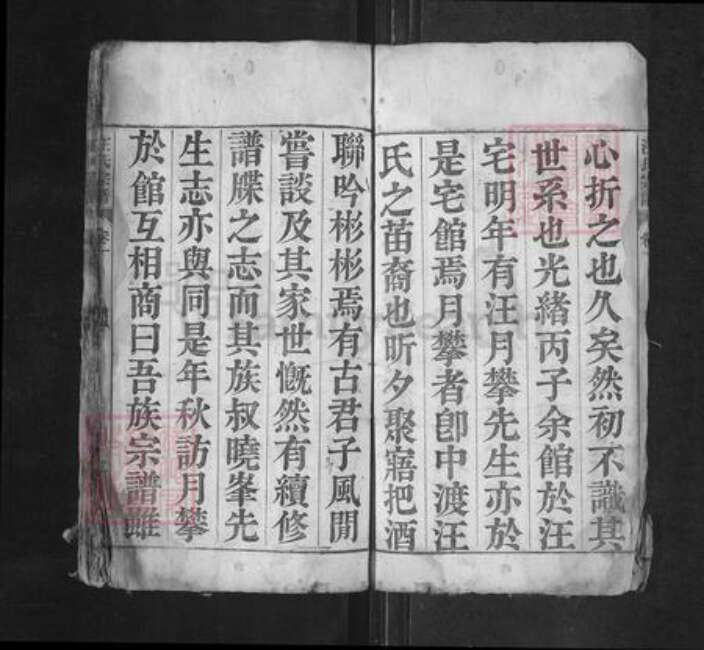 心折之也久矣然初不識其
世系也光緒丙子余館於汪
宅明年有汪月攀先生亦於
是宅館焉月攀者卽中渡汪
氏之苗裔也昕夕聚寤把酒
聯吟彬彬焉有古君子風閒
嘗談及其家世慨然有續修
譜牒之志而其族叔曉峯先
生志亦與同是年秋訪月攀
於館互相商曰吾族宗譜雖